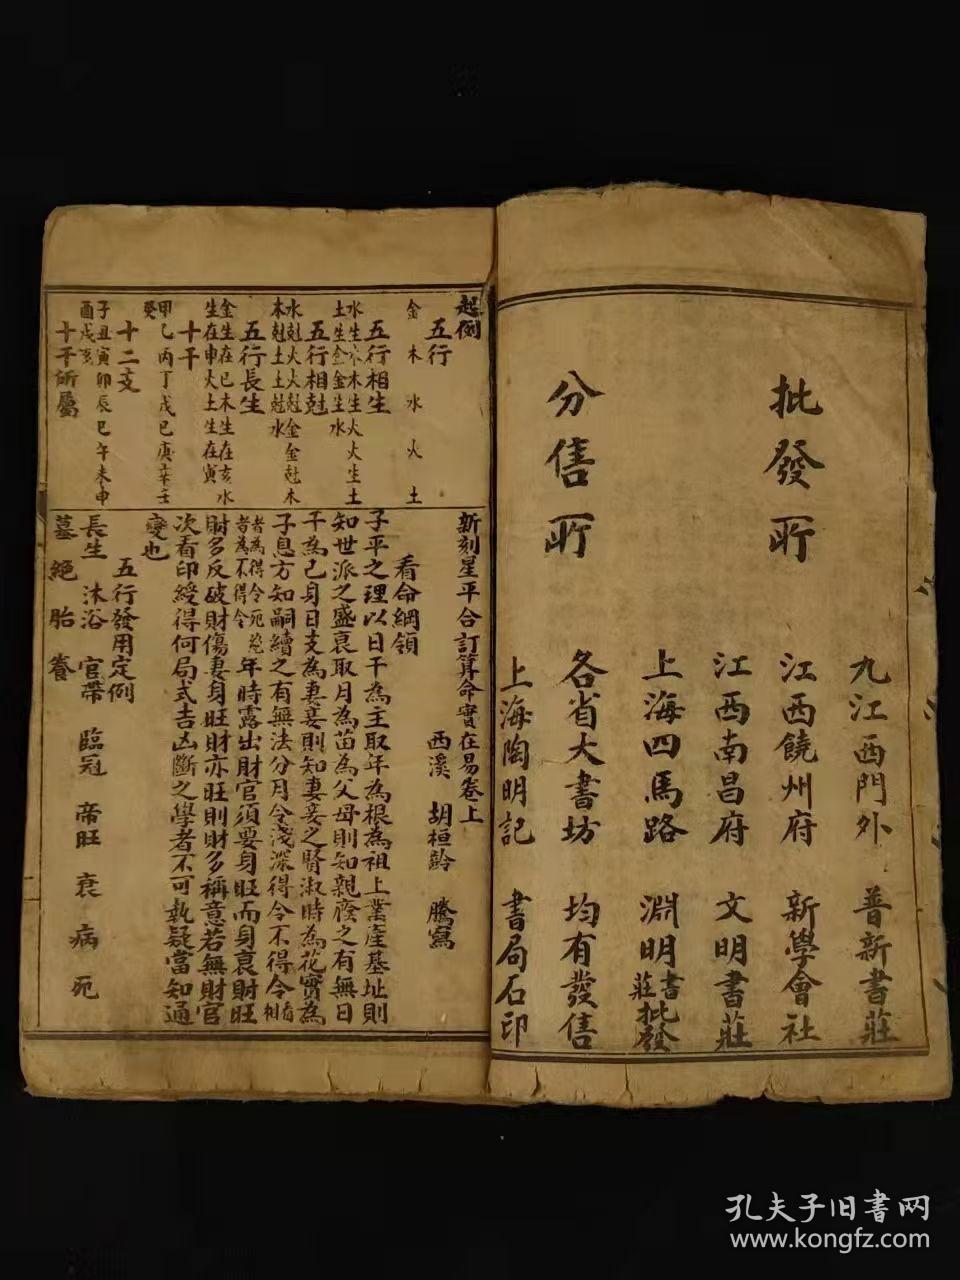 批發所
九江西門外 普新書莊
江西饒州府 新學會社
江西南昌府 文明書莊
上海四馬路 淵明書莊批發
分售所
各省大書坊 均有發售
上海陶明記 書局石印
起例
五行
金木水火土
五行相生
水生木木生火火生土
土生金金生水
五行相尅
水尅火火尅金金尅木
木尅土土尅水
五行長生
金生在巳木生在亥水
生在申火土生在寅
十干
甲乙丙丁戊己庚辛壬
癸
十二支
子丑寅卯辰巳午未申
酉戌亥
十干所屬
新刻星平合訂算命實在易卷上
西溪 胡桓齡 騰寫
看命綱領
子平之理以日干為主取年為根為祖上業產基址則
知世派之盛衰取月為苗為父母則知親廕之有無日
干為己身日支為妻妾則知妻妾之賢淑時為花實為
子息方知嗣續之有無法分月令淺深得令不得令相看
者為得令死絕
者為不得令
年時露出財官須要身旺而身衰財旺
財多反破財傷妻身旺財亦旺則財多稱意若無財官
次看印綬得何局式吉凶斷之學者不可執疑當知通
變也
五行發用定例
長生 沐浴 官帶 臨冠 帝旺 衰 病 死
墓 絕 胎 養
孔夫子旧书网
www.kongfz.com